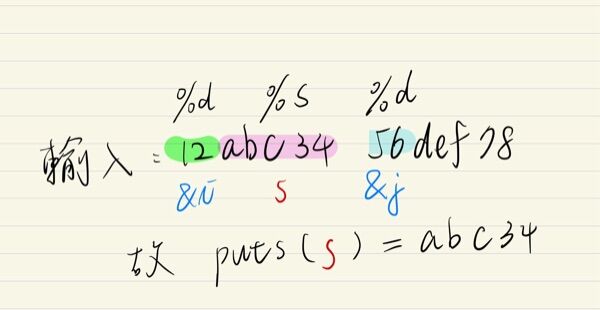 %d %s %d
輸入 = 12abc34 56def78
&i s &j
故 puts(s) = abc34